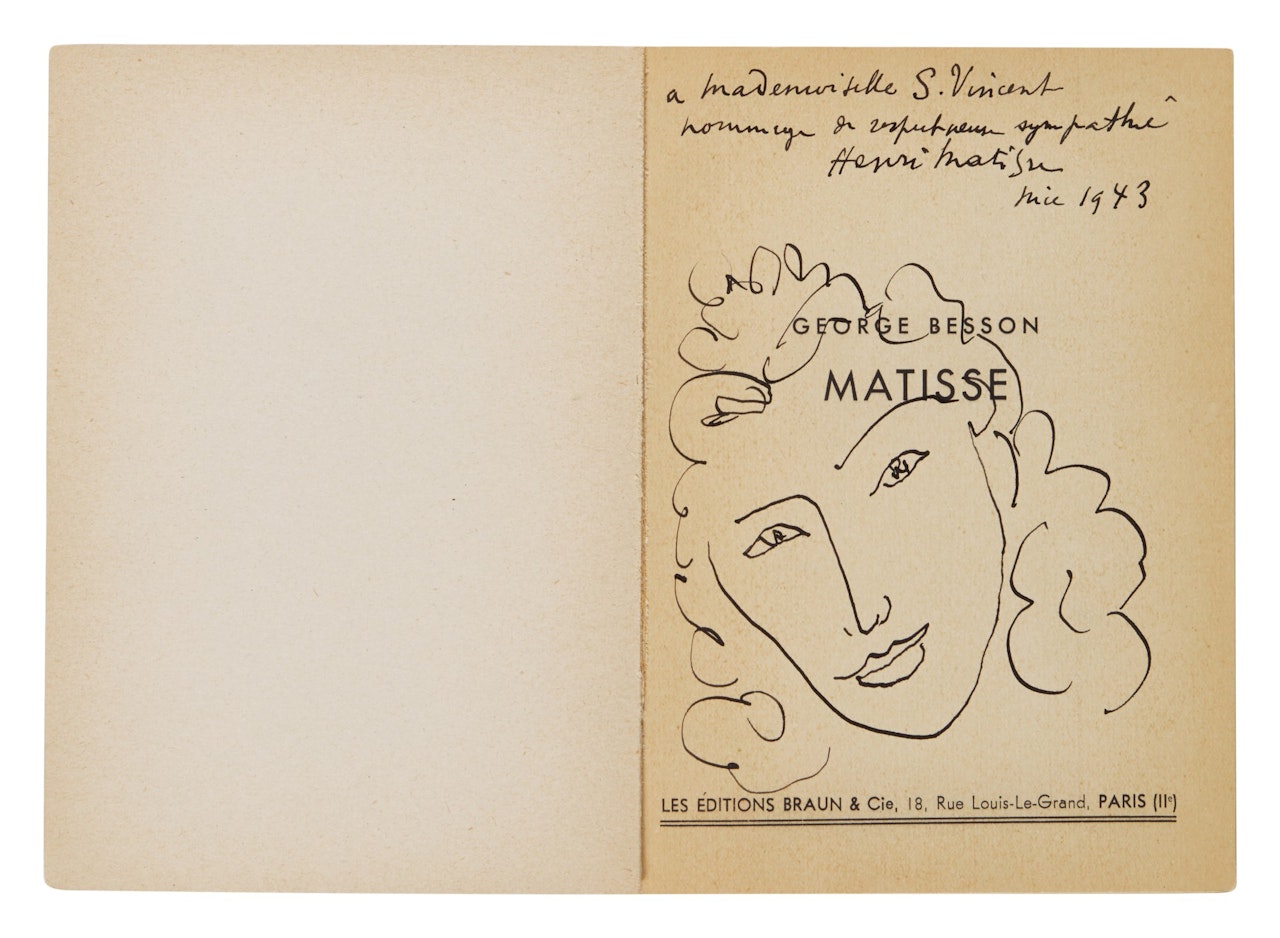 a Mademoiselle S. Vincent
hommage de respectueuse sympathie
Henri Matisse
Nice 1943
GEORGE BESSON
MATISSE
LES ÉDITIONS BRAUN & Cie, 18, Rue Louis-Le-Grand, PARIS (IIᵉ)